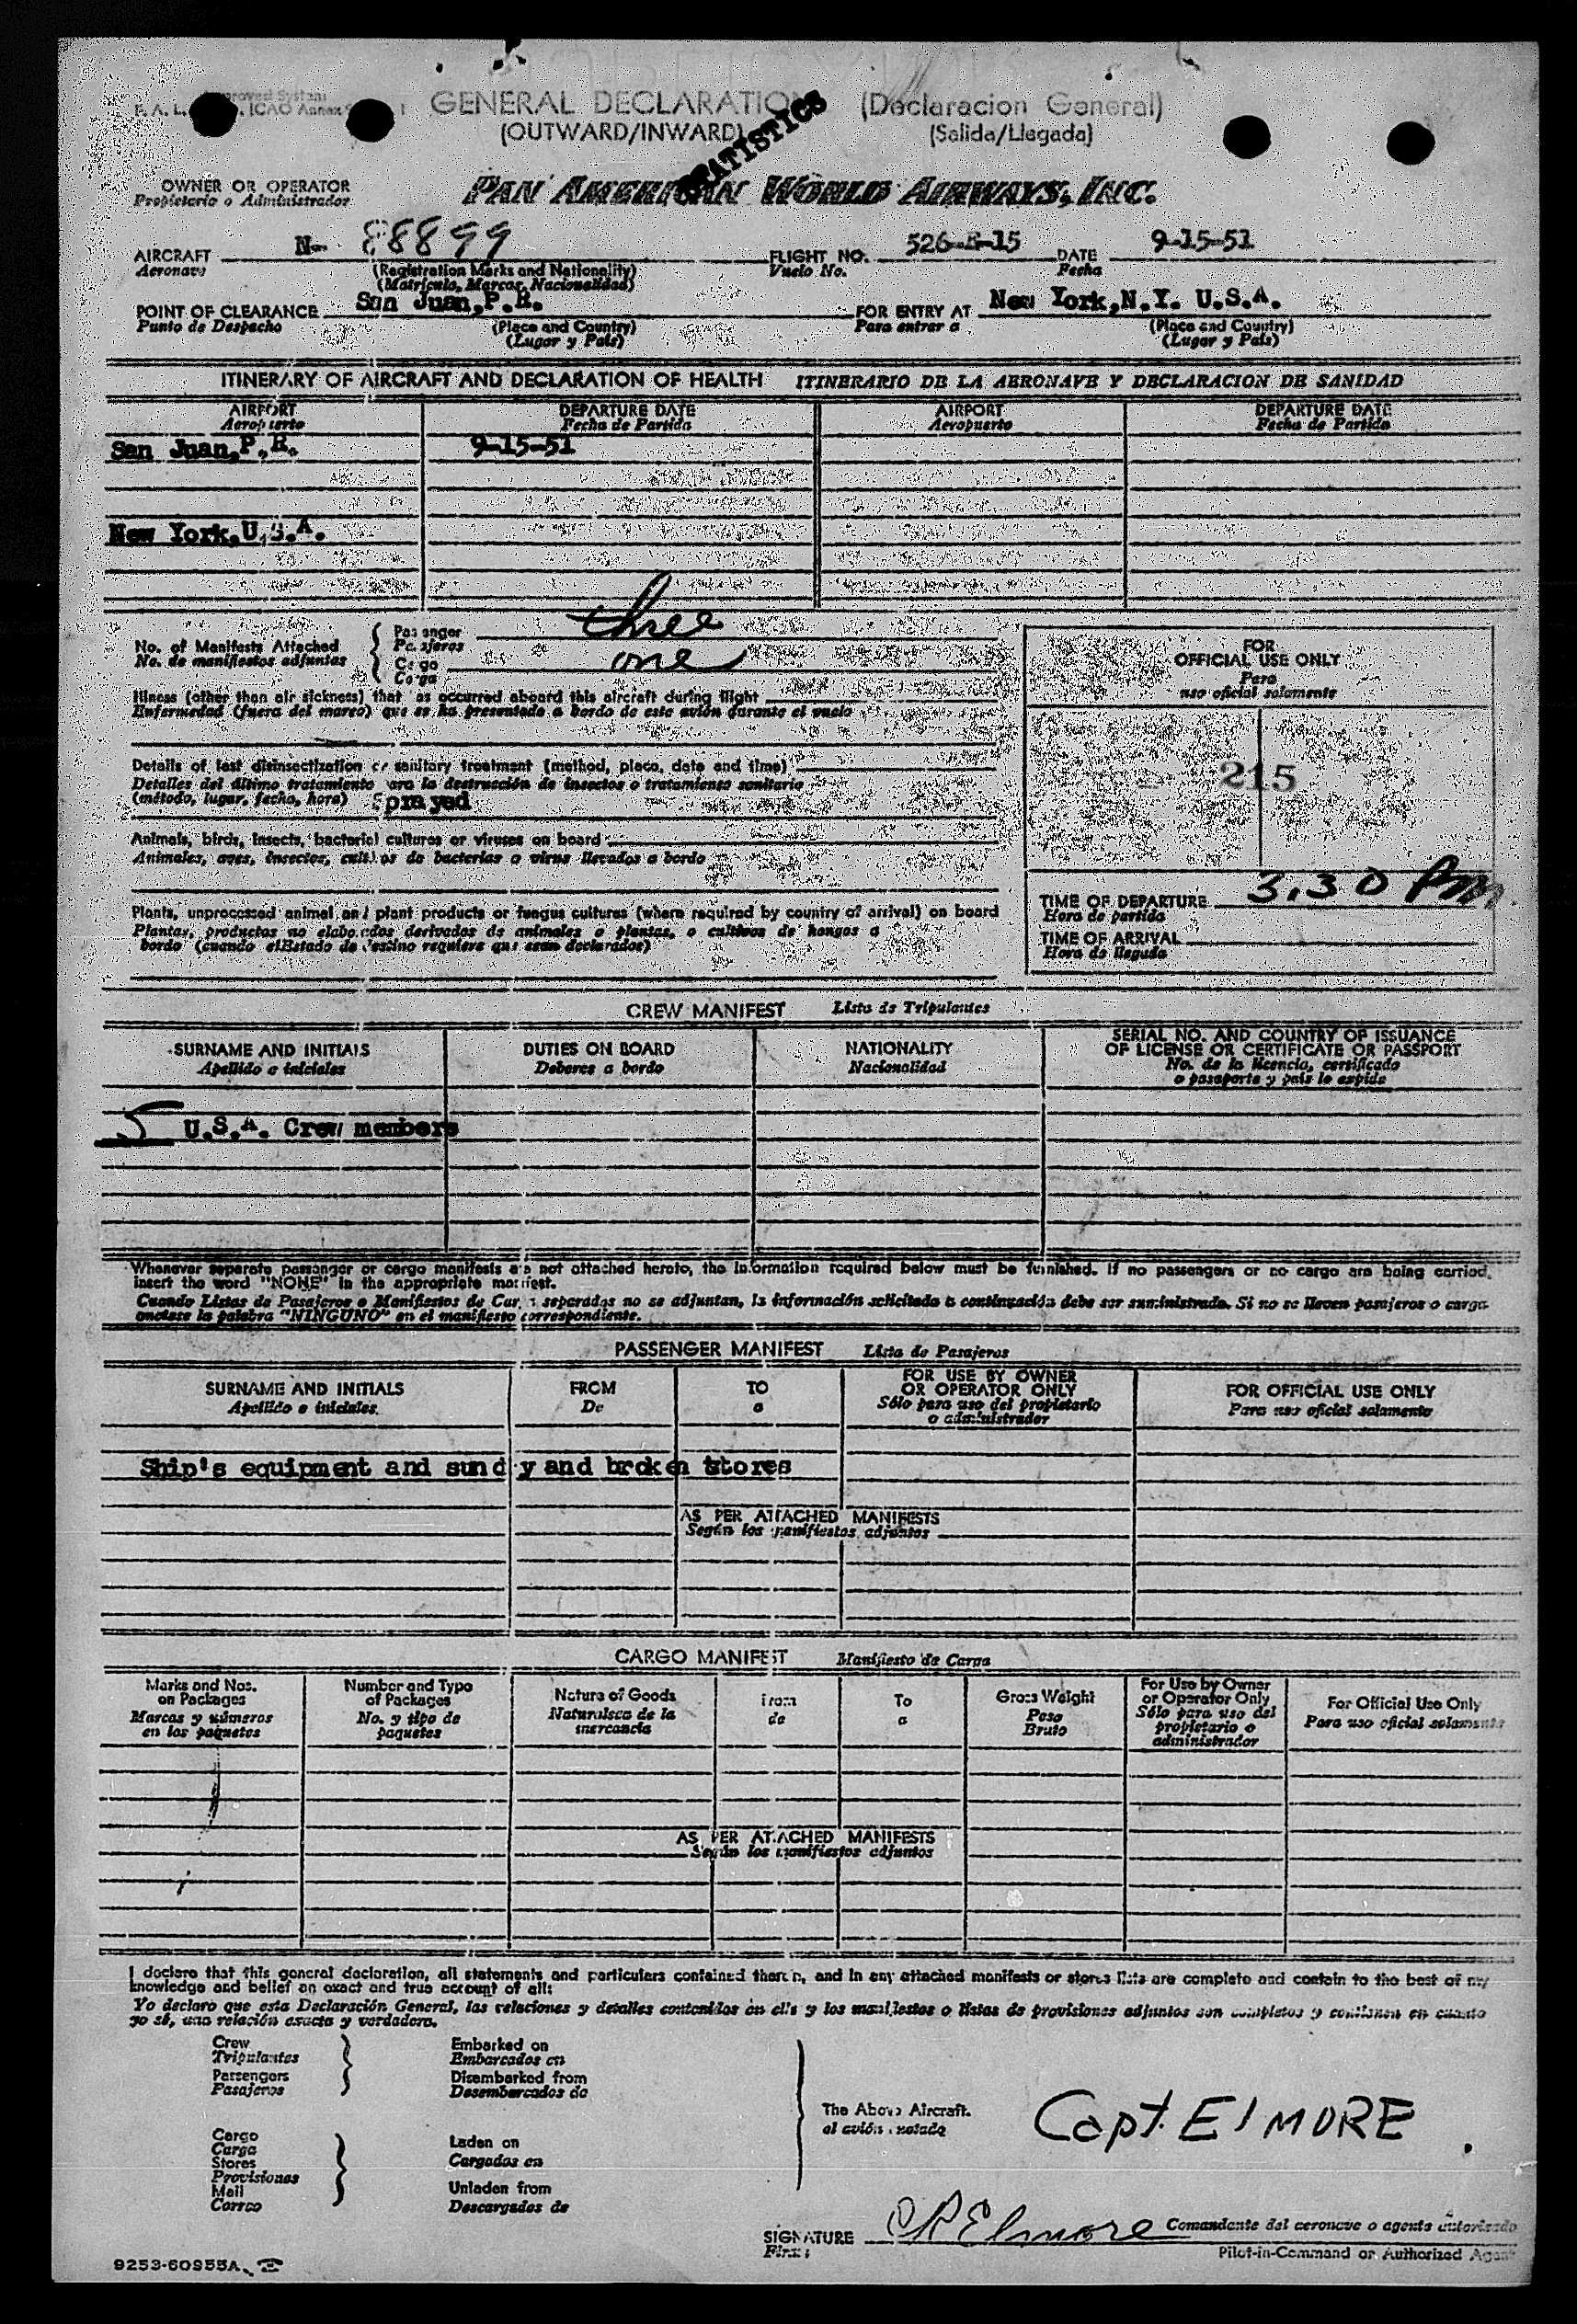 GENERAL DECLARATION (Declaracion General)
(OUTWARD/INWARD) (Salida/Llegada)
STATISTICS
OWNER OR OPERATOR PAN AMERICAN WORLD AIRWAYS, INC.
Propietario o Administrador
AIRCRAFT N- 88899 FLIGHT NO. 526-B-15 DATE 9-15-51
Aeronave (Registration Marks and Nationality) Vuelo No. Fecha
(Matricula, Marcas, Nacionalidad)
POINT OF CLEARANCE San Juan,P.R. FOR ENTRY AT New York,N.Y. U.S.A.
Punto de Despacho (Place and Country) Para entrar a (Place and Country)
(Lugar y País) (Lugar y País)
ITINERARY OF AIRCRAFT AND DECLARATION OF HEALTH ITINERARIO DE LA AERONAVE Y DECLARACION DE SANIDAD
AIRPORT DEPARTURE DATE AIRPORT DEPARTURE DATE
Aeropuerto Fecha de Partida Aeropuerto Fecha de Partida
San Juan,P.R. 9-15-51
New York,U.S.A.
No. of Manifests Attached Passenger three
No. de manifiestos adjuntos Pasajeros
Cargo one
Carga
Illness (other than air sickness) that has occurred aboard this aircraft during flight
Enfermedad (fuera del mareo) que se ha presentado a bordo de este avión durante el vuelo
Details of last disinsectization or sanitary treatment (method, place, date and time)
Detalles del último tratamiento para la destrucción de insectos o tratamiento sanitario
(método, lugar, fecha, hora) Sprayed
Animals, birds, insects, bacterial cultures or viruses on board
Animales, aves, insectos, cultivos de bacterias o virus llevados a bordo
Plants, unprocessed animal and plant products or fungus cultures (where required by country of arrival) on board
Plantas, productos no elaborados derivados de animales o plantas, o cultivos de hongos a
bordo (cuando el Estado de destino requiere que sean declarados)
FOR
OFFICIAL USE ONLY
Para
uso oficial solamente
215
TIME OF DEPARTURE 3.30 Pm.
Hora de partida
TIME OF ARRIVAL
Hora de llegada
CREW MANIFEST Lista de Tripulantes
SURNAME AND INITIALS DUTIES ON BOARD NATIONALITY SERIAL NO. AND COUNTRY OF ISSUANCE
OF LICENSE OR CERTIFICATE OR PASSPORT
Apellido e iniciales Deberes a bordo Nacionalidad No. de la licencia, certificado
o pasaporte y país lo expide
5 U.S.A. Crew members
Whenever separate passenger or cargo manifests are not attached hereto, the information required below must be furnished. If no passengers or no cargo are being carried,
insert the word "NONE" in the appropriate manifest.
Cuando Listas de Pasajeros o Manifiestos de Carga separadas no se adjuntan, la información solicitada a continuación debe ser suministrada. Si no se lleven pasajeros o carga
anotese la palabra "NINGUNO" en el manifiesto correspondiente.
PASSENGER MANIFEST Lista de Pasajeros
SURNAME AND INITIALS FROM TO FOR USE BY OWNER
OR OPERATOR ONLY FOR OFFICIAL USE ONLY
Apellido e iniciales. De a Sólo para uso del propietario
o administrador Para uso oficial solamente
Ship's equipment and sundry and broken stores
AS PER ATTACHED MANIFESTS
Según los manifiestos adjuntos
CARGO MANIFEST Manifiesto de Carga
Marks and Nos.
on Packages
Marcas y números
en los paquetes
Number and Type
of Packages
No. y tipo de
paquetes
Nature of Goods
Naturaleza de la
mercancía
From
de
To
a
Gross Weight
Peso
Bruto
For Use by Owner
or Operator Only
Sólo para uso del
propietario o
administrador
For Official Use Only
Para uso oficial solamente
AS PER ATTACHED MANIFESTS
Según los manifiestos adjuntos
I declare that this general declaration, all statements and particulars contained therein, and in any attached manifests or stores lists are complete and contain to the best of my
knowledge and belief an exact and true account of all:
Yo declaro que esta Declaración General, las relaciones y detalles contenidos en ella y los manifiestos o listas de provisiones adjuntos son completos y contienen en cuanto
yo sé, una relación exacta y verdadera.
Crew Embarked on
Tripulantes Embarcados en
Passengers Disembarked from
Pasajeros Desembarcados de
The Above Aircraft.
el avión notado
Capt. ElMORE
Cargo
Carga Laden on
Stores Cargados en
Provisiones
Mail Unladen from
Correo Descargados de
SIGNATURE CR Elmore Comandante del aeronave o agente autorizado
Firma Pilot-in-Command or Authorized Agent
9253-60955A